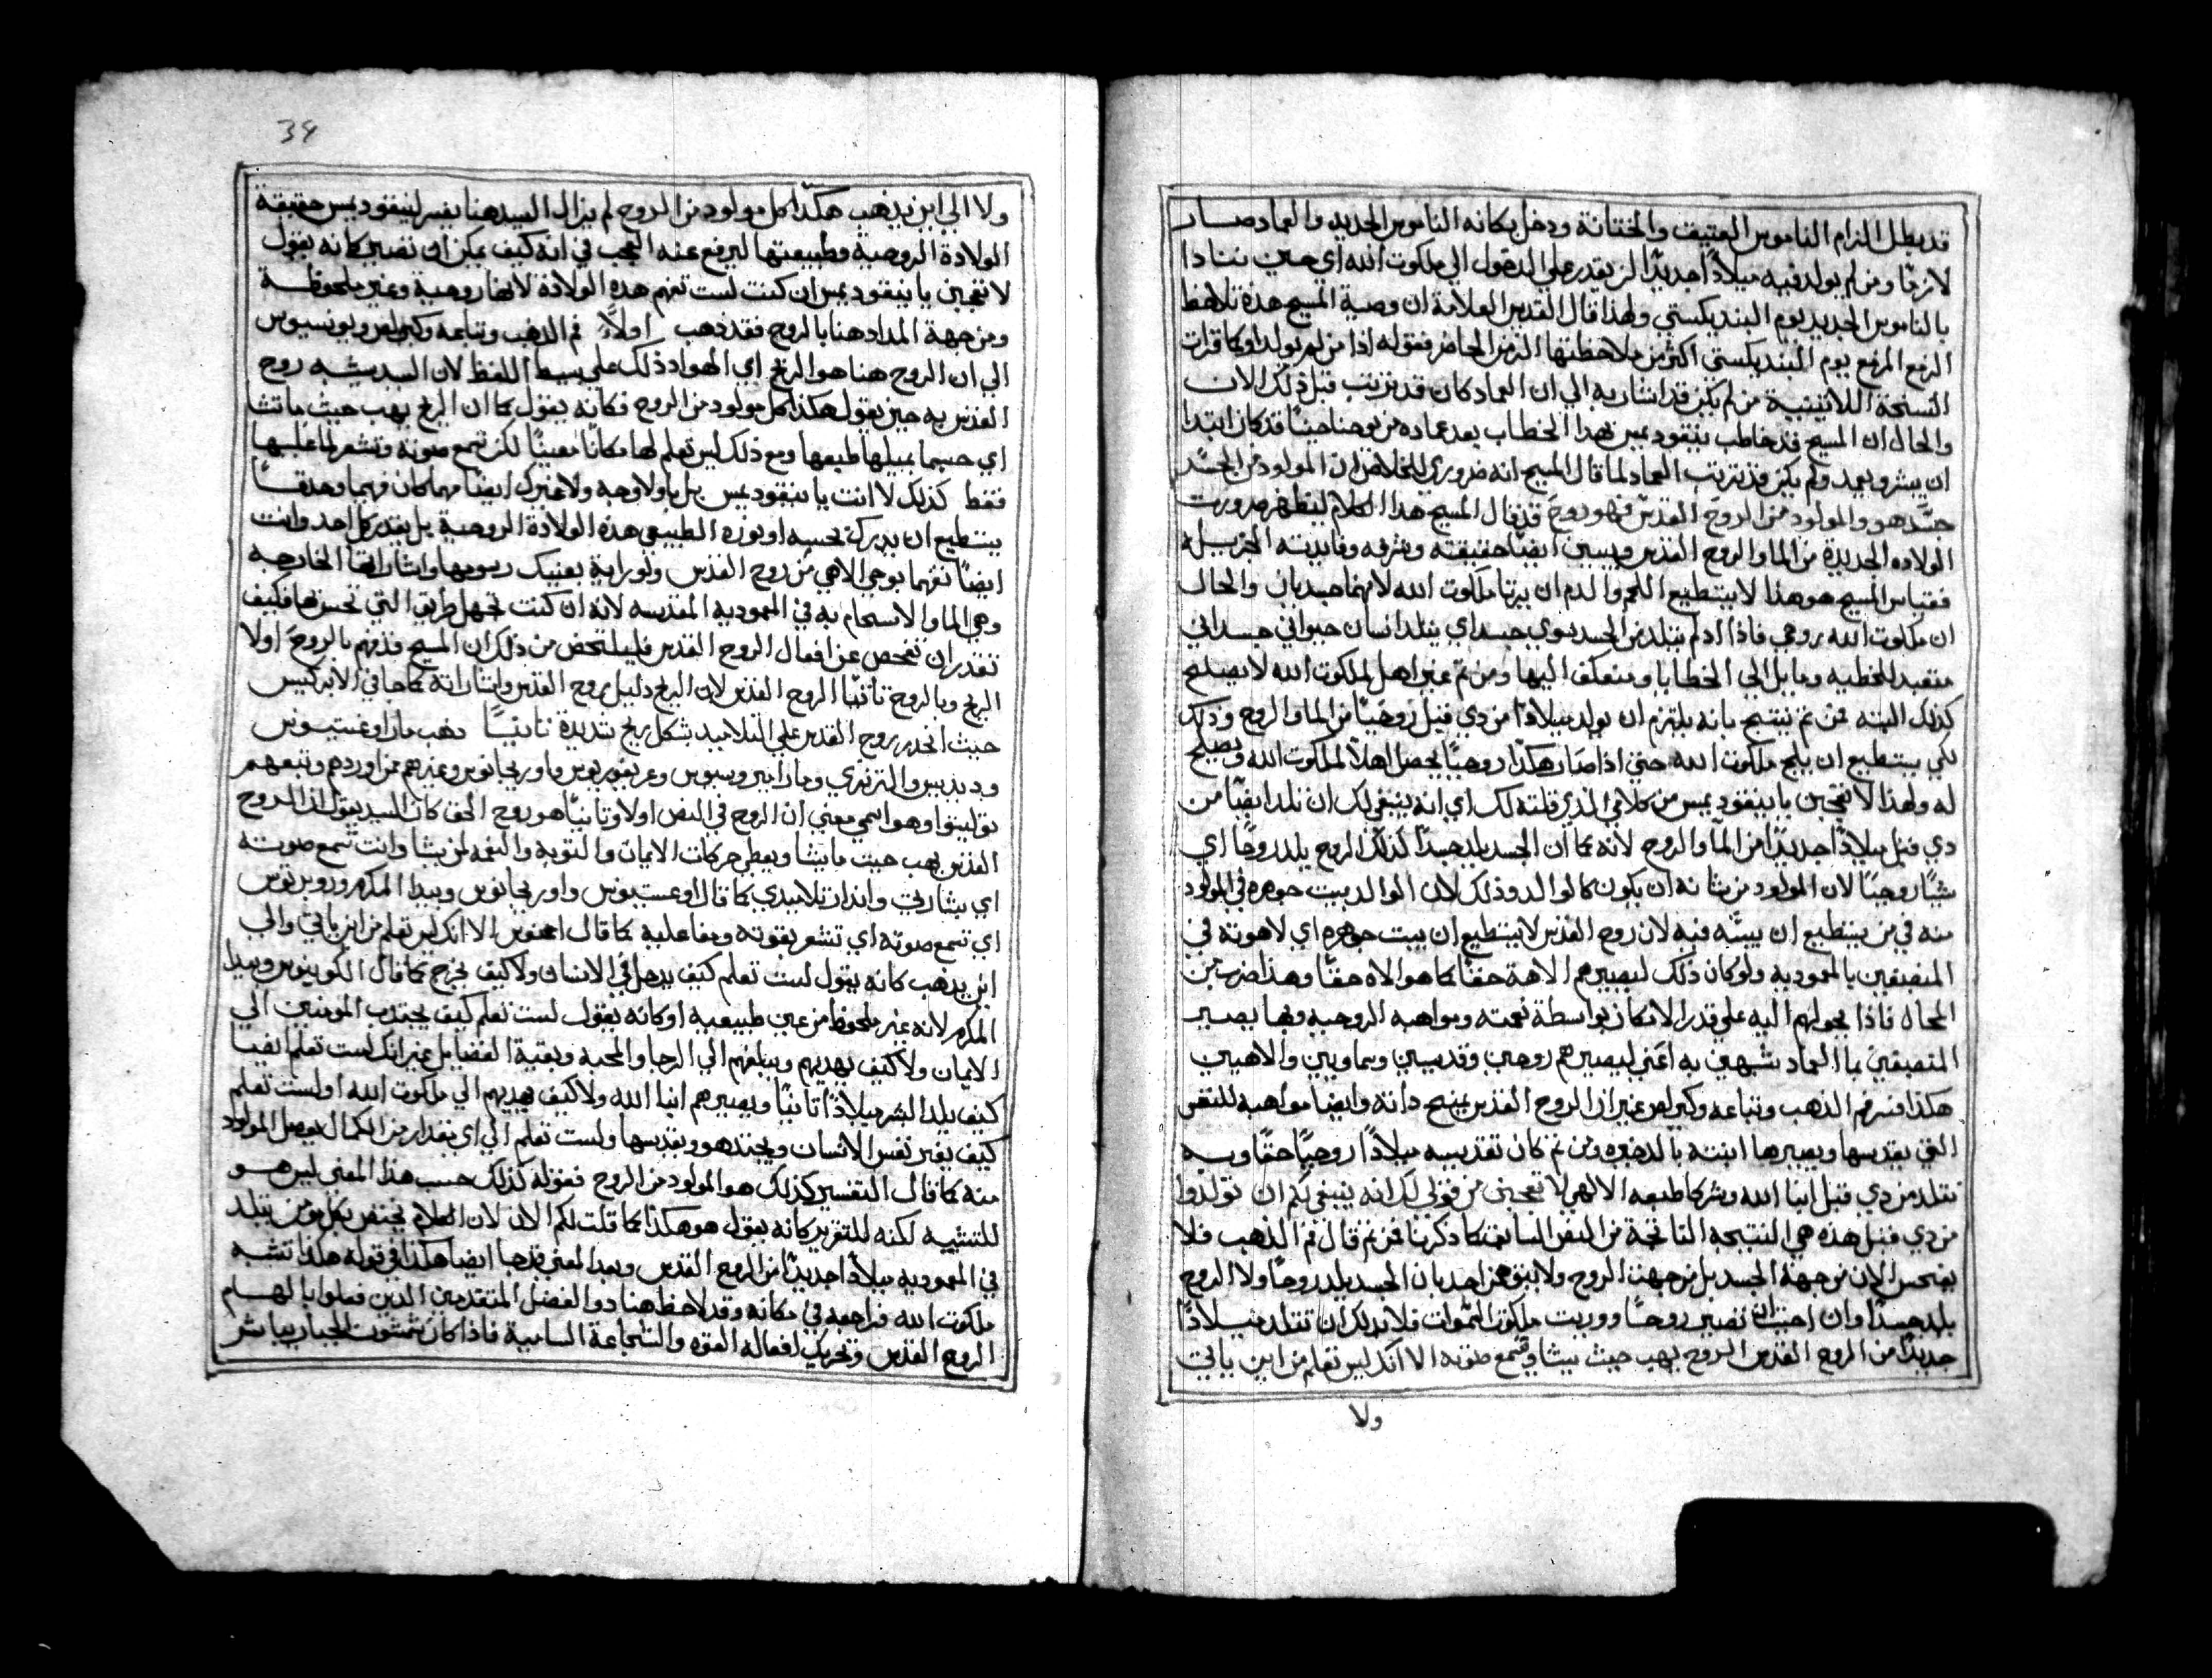 قد بطل الزام الناموس العتيق والختانة ودخل مكانه الناموس الجديد والعماد صار
لازمًا ومن لم يولد فيه ميلادًا جديدًا لن يقدر على الدخول الى ملكوت الله اي حين ننادا
بالناموس الجديد يوم البنديكستي ولهذا قال القديس العلامة ان وصية المسيح هذه تلاحظ
الزمع المزمع يوم البنديكستي اكثر من ملاحظتها الزمن الحاضر فقوله اذا من لم يولد او كما قرات
النسخة اللاتينية من لم يكن قد اشار به الي ان العماد كان قد ترتب قبل ذلك الان
والحال ان المسيح قد خاطب نيقوديمس بهذا الخطاب بعد عماده من يوحنا حينًا قد كان ابتدا
ان يبشر ويعمد ولم يكن قد ترتب العماد لما قال المسيح انه ضروري للخلاص ان المولود من الجسد
جسد هو والمولود من الروح القدس فهو روح قد قال المسيح هذا الكلام ليظهر ضرورت
الولاده الجديدة من الما والروح القدس ويبين ايضًا حقيقته وشرفه وفايدته الجزيله
فقياس المسيح هو هذا لا يستطيع اللحم والدم ان يرثا ملكوت الله لانهما جسديان والحال
ان ملكوت الله روحي فاذا ادم لم يتلد من الجسد سوي جسد اي يتلد انسان حيواني جسداني
متعبد للخطيه ومايل الى الخطايا ومنعكف اليها ومن ثم غير اهل لملكوت الله لا يصلح
كذلك البته فمن ثم ينتج بانه يلتزم ان يولد ميلادًا من ذي قبل روحيًا من الما والروح وذلك
لكي يستطيع ان يلج ملكوت الله حتي اذا صار هكذا روحيًا يحصل اهلاً لملكوت الله ويصلح
له ولهذا لا تتعجبن يا نيقوديمس من كلامي الذي قلته لك اي انه ينبغي لك ان تلد ايضًا من
ذي قبل ميلادًا جديدًا من الما والروح لانه كما ان الجسد يلد جسدًا كذلك الروح يلد روحًا اي
شيًا روحيًا لان المولود من شانه ان يكون كالوالد وذلك لان الوالد يبث جوهره في المولود
منه في من يستطيع ان يبثه فيه لان روح القدس لا يستطيع ان يبث جوهره اي لاهوته في
المنصبغين بالمعمودية ولو كان ذلك ليصيرهم الاهة حقًا كما هو الاه حقًا وهذا ضرب من
المحال فاذا يحولهم اليه على قدر الامكان بواسطة نعمته ومواهبه الروحيه وبها يصير
المنصبغين بما العماد شبيهين به اعني ليصيرهم روحيين وقديسين وسماويين والاهيين
هكذا فسر فم الذهب وتباعه وكيرلس غير ان الروح القدس يمنح ذاته وايضًا مواهبه للنفس
التي يقدسها ويصيرها ابنته بالذخيره ومن ثم كان تقديسه ميلادًا روحيًا حقًا وبه
نتلد من ذي قبل ابنا الله وشركا طبعه الالهي لا تتعجبن من قولى لك انه ينبغي لكم ان تولدوا
من ذي قبل هذه هي النتيجه الناتجة من النص السابق كما ذكرنا فمن ثم قال فم الذهب فلا
يفحص الان من جهة الجسد بل من جهة الروح ولا يتوهمن احد بان الجسد يلد روحًا ولا الروح
يلد جسدًا وان احببت ان تصير روحًا ووريث ملكوت السموات فلا بد لك ان تتلد ميلادًا
جديدًا من الروح القدس الروح يهب حيث يشا وتسمع صوته الا انك ليس تعلم من اين ياتي
ولا
34
ولا الي اين يذهب هكذا كل مولود من الروح لم يزال السيد هنا يفسر لنيقوديمس حقيقة
الولادة الروحية وطبيعتها ليرفع عنه العجب في انه كيف يمكن ان تصير كانه يقول
لا تتعجبن يا نيقوديمس ان كنت لست تفهم هذه الولادة لانها روحية وغير ملحوظة
ومن جهة المراد هنا بالروح فقد ذهب اولاً فم الذهب وتباعه وكيرلس ويونسيوس
الي ان الروح هنا هو الريح اي الهوا وذلك على بسيط اللفظ لان السيد يشبه روح
القدس به حين يقول هكذا كل مولود من الروح فكانه يقول كما ان الريح يهب حيث ما تشا
اي حيثما يميلها طبعها ومع ذلك ليس تعلم لها مكانًا معينًا لكن تسمع صوته وتشعر لما غلبها
فقط كذلك لا انت يا نيقوديمس بل باولا وجه ولا غيرك ايضًا مهما كان فهيمًا وحدقًا
يستطيع ان يدرك بحسه او بنوره الطبيعي هذه الولادة الروحية بل يقدر كل احد وانت
ايضًا تفهما بوحي الاهي من روح القدس ونورانية بعينيك رسومها واشاراتها الخارجه
وهي الما والاستحمام به في المعموديه المقدسه لانه ان كنت تجهل طريق التي تحس بها فكيف
تقدر ان تفحص عن افعال الروح القدس فليلتحض من ذلك ان المسيح قد فهم بالروح اولا
الريح وبالروح ثانيًا الروح القدس لان الريح دليل روح القدس واشاراته كما جا في الابركسيس
حيث انحدر روح القدس على التلاميذ بشكل ريح شديدة ثانيًا ذهب مار اوغستينوس
وديديمس والترتري ومار امبروسيوس وغريغوريوس واوريجانوس وغيرهم ممن اوردهم وتبعهم
توليتوا وهو اسمي معني ان الروح في النص اولا وثانيًا هو روح الحق كان السيد يقول ان الروح
القدس يهب حيث ما يشا ويعطي حركات الايمان والتوبه والنعمه لمن يشا وانت تسمع صوته
اي بشارتي وانذار تلاميذي كما قال اوغستينوس واوريجانوس وبيدا المكرم وروبرتوس
اي تسمع صوته اي تشعر بقوته ومفاعليه كما قال الا انك ليس تعلم من اين ياتي والى
اين يذهب كانه يقول لست تعلم كيف يدخل في الانسان ولا كيف يخرج كما قال الكوينوس وبيدا
المكرم لانه غير ملحوظ من عين طبيعيه او كانه يقول لست تعلم كيف يجتذب المومنين الي
الايمان ولا كيف يهديهم ويبلغهم الي الرجا والمحبه وبقية الفضايل غير انك لست تعلم ايضًا
كيف يلد البشر ميلادًا ثانيًا ويصيرهم ابنا الله ولا كيف يهديهم الي ملكوت الله او لست تعلم
كيف يغير نفس الانسان ويجددها ويقدسها ولست تعلم الي اي مقدار من الكمال يصل المولود
منه كما قال التفسير كذلك هو المولود من الروح فقوله كذلك حسب هذا المعني ليس هو
للتشبيه لكنه للتقرير كانه يقول هو هكذا كما قلت لكم الان لان الكلام يختص بكل مومن يتلد
في المعموديه ميلادًا جديدًا من الروح القدس وبهذا المعني قد جا ايضًا هكذا في قوله هكذا تشبه
ملكوت الله فراجعه في مكانه وقد لاحظ هنا ذوا الفضل المتقدمين الذين فعلوا بالهام
الروح القدس وتحريك افعاله القوه والشجاعة السامية فاذا كان شمشون الجبار يباشر